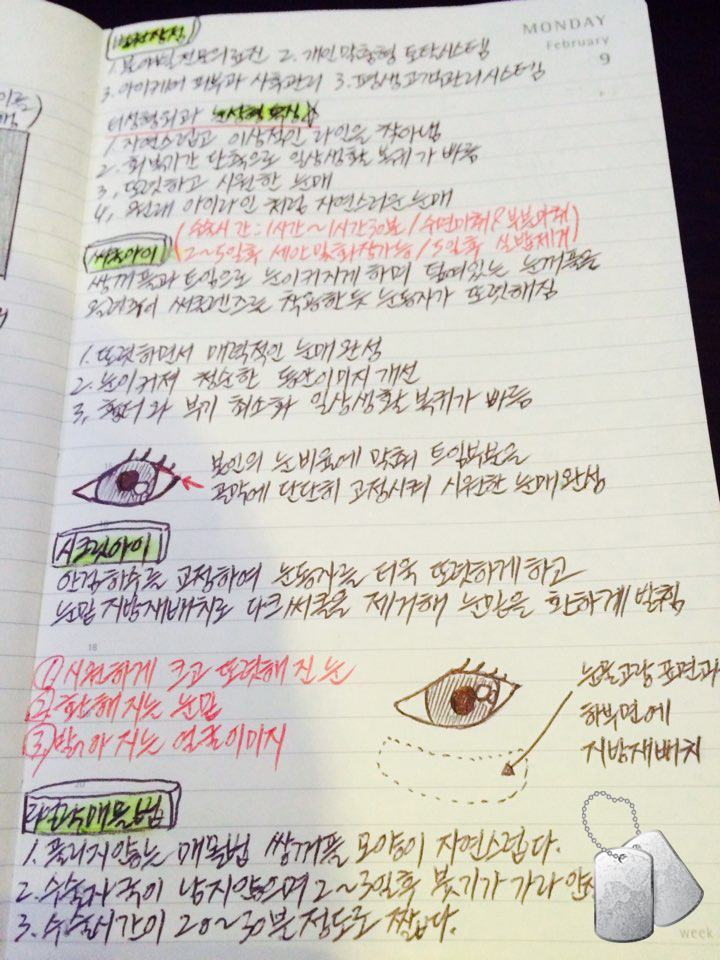 MONDAY
February
9
병원장점
1. 분야별 전문의료진 2. 개인맞춤형 토탈시스템
3. 아이케어 피부과 사후관리 3. 평생고객관리시스템
더성형외과 눈성형 특징
1. 자연스럽고 이상적인 라인을 잡아냄
2. 회복기간 단축으로 일상생활 복귀가 빠름
3. 또렷하고 시원한 눈매
4. 원래 아이라인처럼 자연스러운 눈매
(수술시간 : 1시간~1시간30분 / 수면마취&부분마취
2~5일후 세안및화장가능 / 5일후 실밥제거)
써클아이
쌍꺼풀과 트임으로 눈이커지게 하며 덮여있는 눈꺼풀을
올려주어 써클렌즈를 착용한듯 눈동자가 또렷해짐
1. 또렷하면서 매력적인 눈매 완성
2. 눈이 커져 청순한 동안이미지 개선
3. 흉터와 부기 최소화 일상생활 복귀가 빠름
본인의 눈 비율에 맞춰 트임부분을
골막에 단단히 고정시켜 시원한 눈매 완성
시크릿아이
안검하수를 교정하여 눈동자를 더욱 또렷하게 하고
눈밑 지방재배치로 다크써클을 제거해 눈밑을 환하게 받침
18
① 시원하게 크고 또렷해진 눈
② 환해지는 눈밑
③ 밝아지는 얼굴이미지
눈물고랑 표면과
하부면에
지방재배치
20
자연유착매몰법
1. 풀리지않는 매몰법 쌍꺼풀 모양이 자연스럽다.
2. 수술자국이 남지않으며 2~3일후 붓기가 가라앉
3. 수술시간이 20~30분정도로 짧다.
week